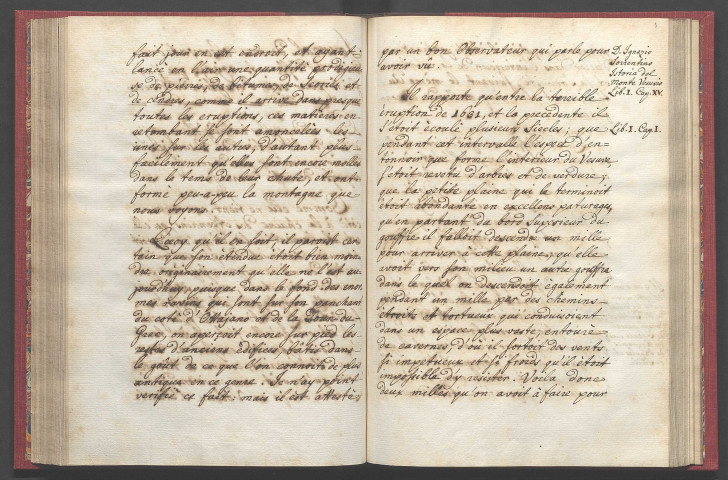 fait jour en cet endroit, et ayant
lancé en l'air une quantité prodigieu-
se de pierres, de bitumes, de
et de cendres, comme il arrive dans presque
toutes les eruptions, ces matieres en
retombant se sont amoncelées les
unes sur les autres, d'autant plus
facilement qu'elles sont encore molles
dans le tems de leur chute, et ont
formé peu-a-peu la montagne que
nous voyons.
Quoy qu'il en soit, il paroit cer-
tain que son étendue étoit bien moin-
dre originairement qu'elle ne l'est au-
jourd'huy, puisque dans le fond des enor-
mes qui sont sur son penchant
du coté d'Ottajano et de la Tour-du-
Grec, on apperçoit encore sur pied les
restes d'anciens édifices, bâtis dans
le goût de ce que l'on connoit de plus
antique en ce genre. Je n'ay point
verifié ce fait: mais il est attesté,
par un bon Observateur qui parle pour
avoir vu.
Il rapporte qu'entre la terrible
éruption de 1631, et la precedente il
s'étoit écoulé plusieurs Siecles; que
pendant cet intervalle l'espece d'en-
tonnoir que forme l'interieur du Vesuve,
s'étoit revetu d'arbres et de verdure;
que la petite plaine qui le terminoit
étoit abondante en excellens paturages,
qu'en partant du bord Superieur du
gouffre il falloit descendre un mille
pour arriver à cette plaine, qu'elle
avoit vers son milieu un autre gouffre
dans le quel on descendoit également
pendant un mille par des chemins
étroits et tortueux qui conduisoient
dans un espace plus vaste, entouré
de cavernes, d'où il sortoit des vents
si impetueux et si froids qu'il étoit
impossible d'y resister. Voila donc
deux milles qu'on avoit à faire pour
D. Ignazio
Sorrentino
Istoria del
Monte Vesuvio
Lib. I. Cap. XV.
Lib. I. Cap I.